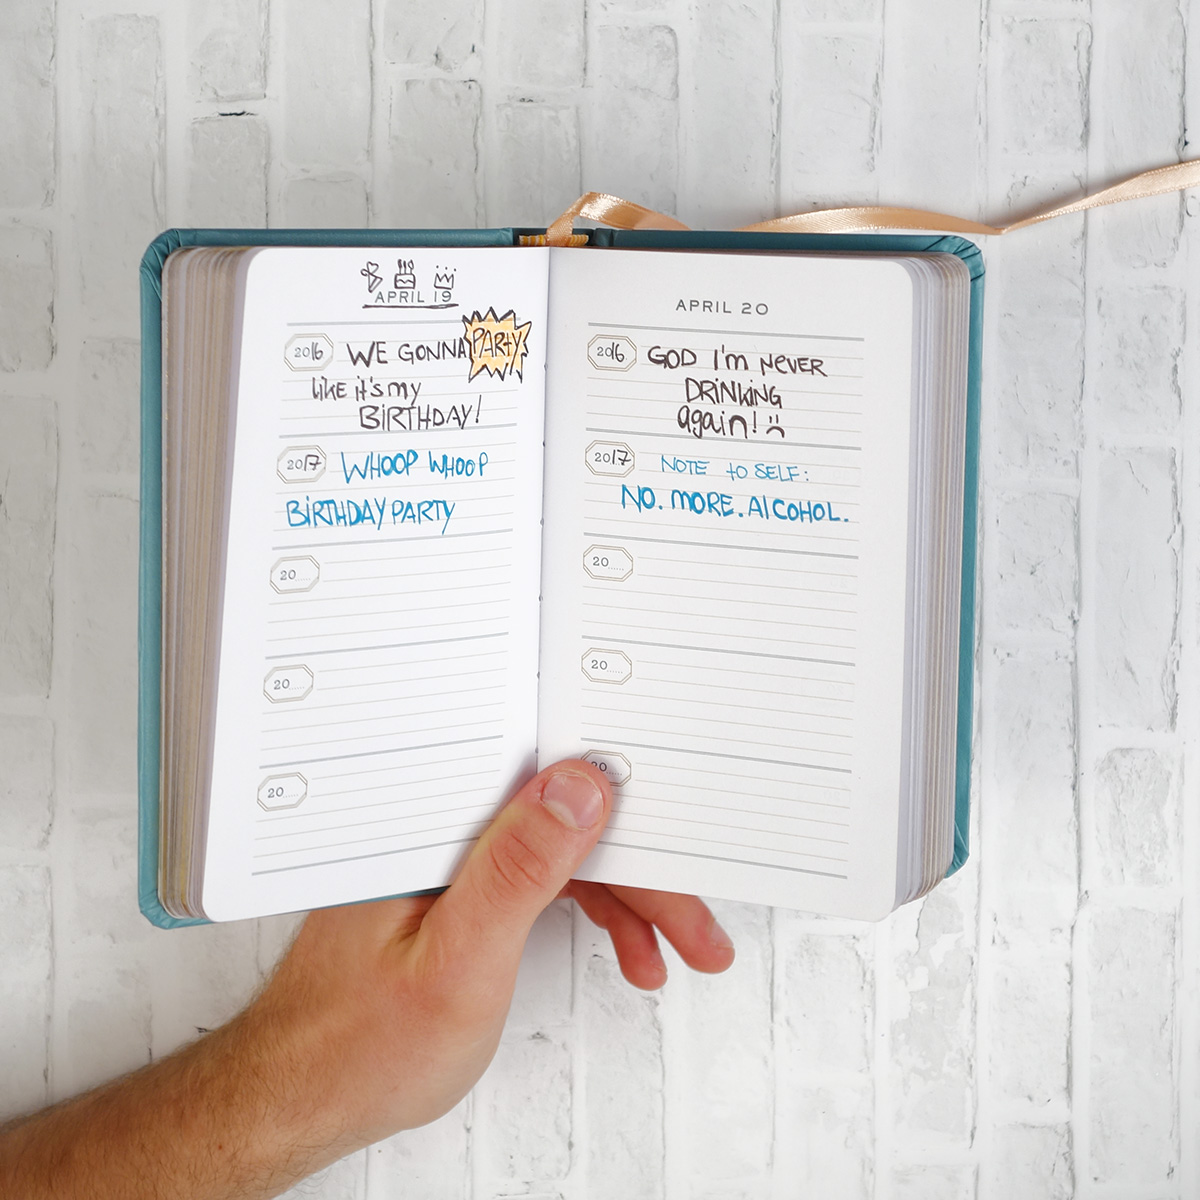 APRIL 19
2016 WE GONNA PARTY
LIKE it's my
BIRTHDAY!
2017 WHOOP WHOOP
BIRTHDAY PARTY
20
20
20
APRIL 20
2016 GOD I'm NEVER
DRINKING
again!
2017 NOTE to SELF:
NO. MORE. AlCOHOL.
20
20
20